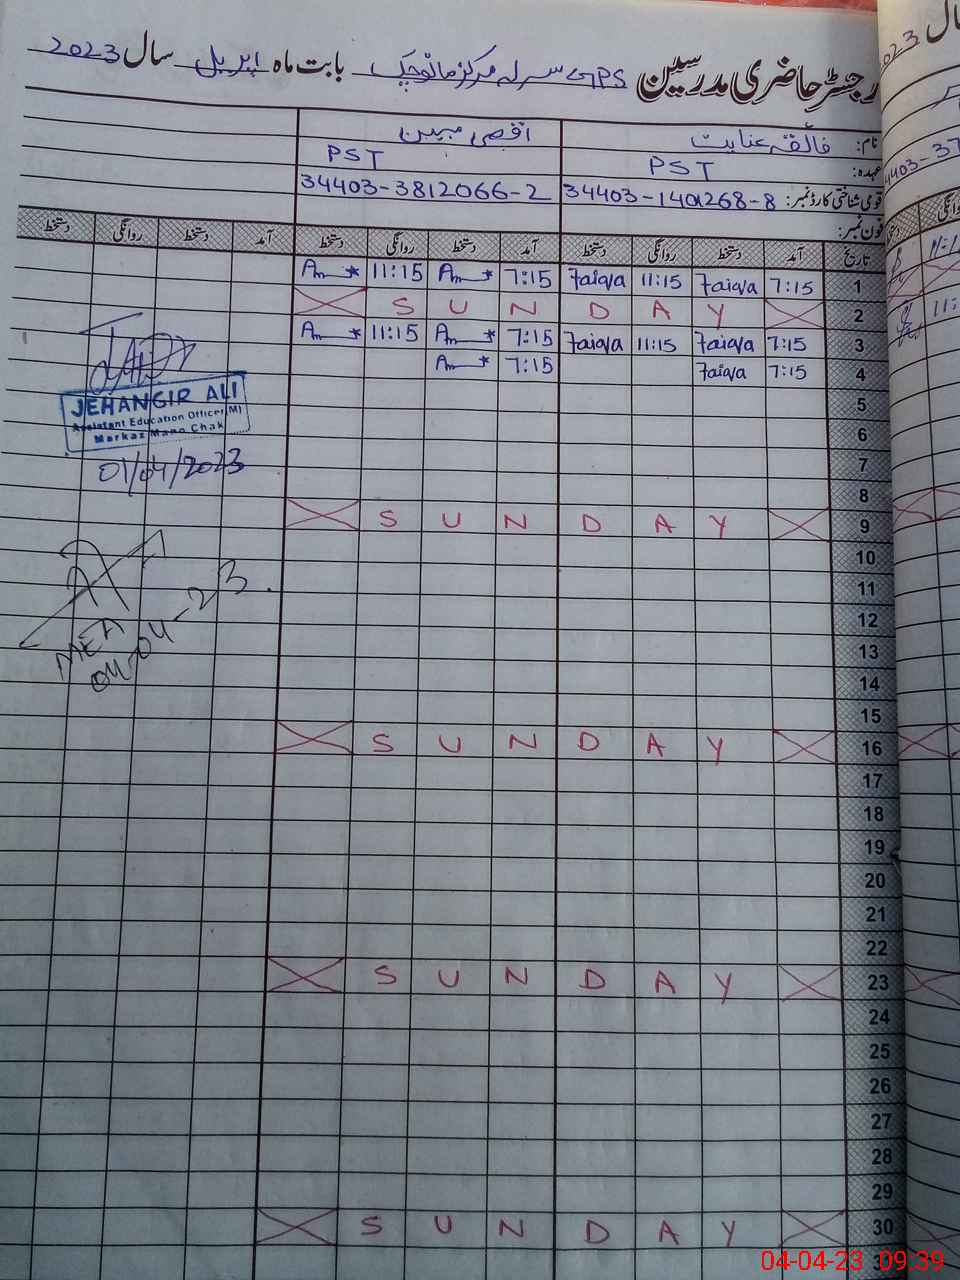 رجسٹر حاضری مدرسین GPS سرلہ مرکز مانوچک بابت ماہ اپریل سال 2023
نام: فائقہ عنایت اقصیٰ مبین
عہدہ: PST PST
قومی شناختی کارڈ نمبر: 34403-3812066-2
فون نمبر:
تاریخ آمد دستخط روانگی دستخط آمد دستخط روانگی دستخط آمد دستخط روانگی دستخط
1 7:15 Faiqa 11:15 Faiqa 7:15 11:15
2 SUNDAY
3 7:15 Faiqa 11:15 Faiqa 7:15 11:15
4 7:15 Faiqa 7:15
5
6
7
8
9 SUNDAY
10
11
12
13
14
15
16 SUNDAY
17
18
19
20
21
22
23 SUNDAY
24
25
26
27
28
29
30 SUNDAY
JEHANGIR ALI
Assistant Education Officer(M)
Markaz Mano Chak
01/04/2023
MEA
04-04-23
04-04-23 09:39